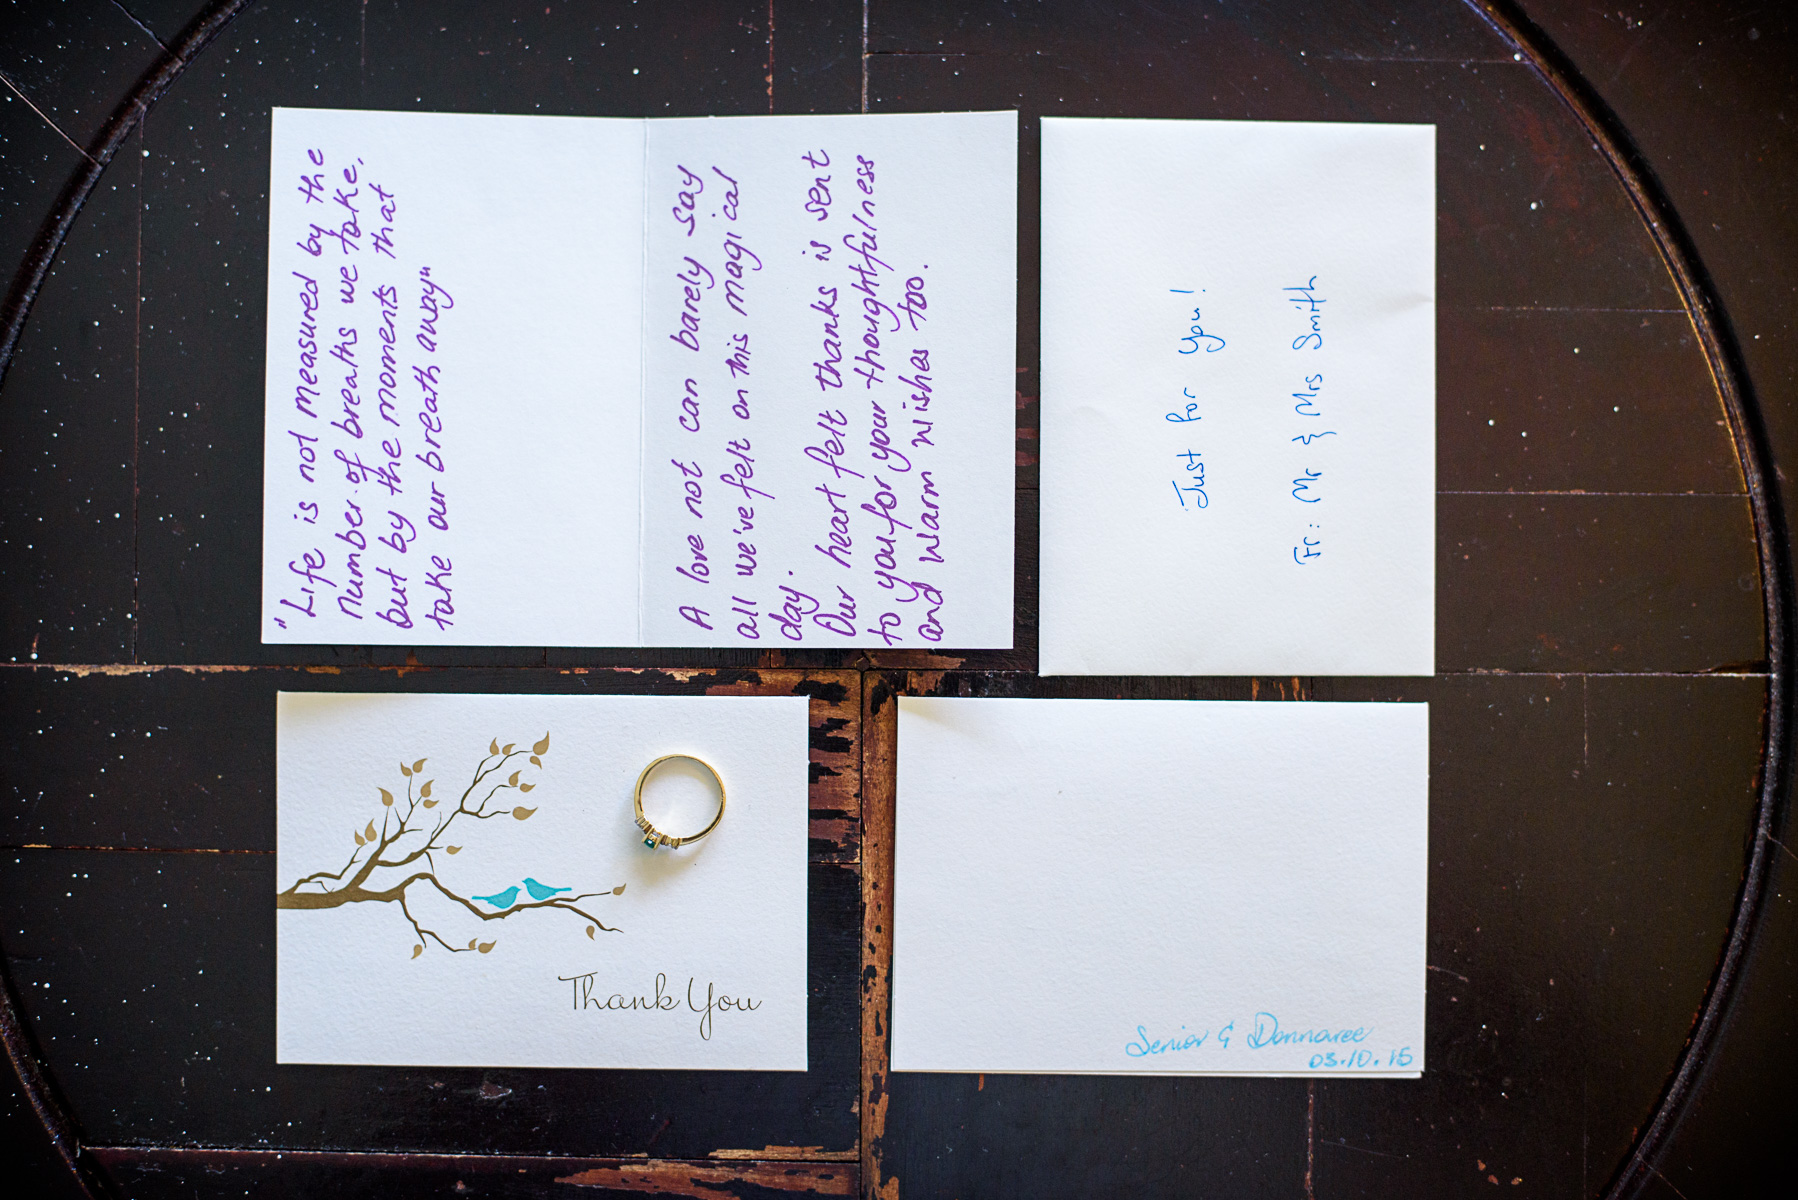 "Life is not measured by the
number of breaths we take,
but by the moments that
take our breath away"
A love not can barely say
all we've felt on this magical
day.
Our heart felt thanks is sent
to you for your thoughtfulness
and warm wishes too.
Just for you!
Fr: Mr & Mrs Smith
Thank You
Senior & Donnaree
03.10.15